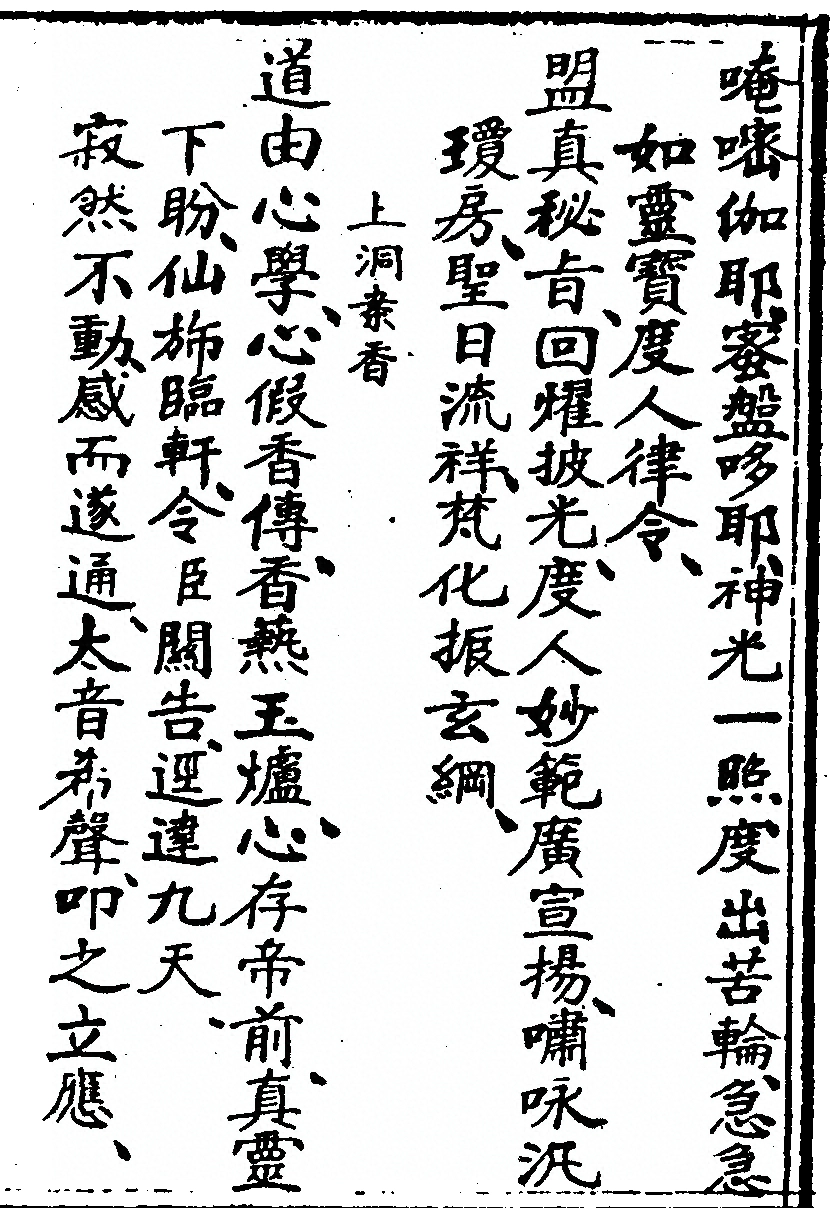 唵嘧伽耶蜜盤哆耶、神光一照、度出苦輪、急急
如靈寶度人律令、
盟真秘旨、回耀披光、度人妙範廣宣揚、嘯咏汎
瓊房、聖日流祥、梵化振玄綱、
上洞案香
道由心學、心假香傳、香爇玉爐、心存帝前、真靈
下盼、仙斾臨軒、令臣關告、逕達九天、
寂然不動、感而遂通、太音希聲、叩之立應、